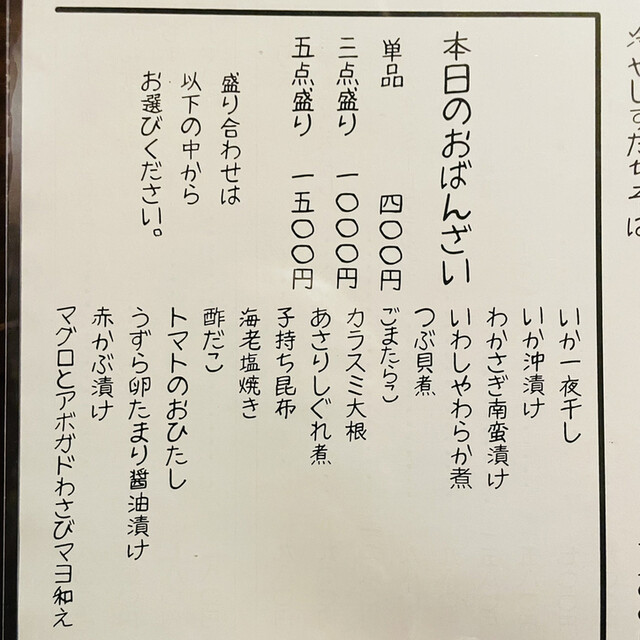 冷やしすだちそば
本日のおばんざい
単品 四〇〇円
三点盛り 一〇〇〇円
五点盛り 一五〇〇円
盛り合わせは
以下の中から
お選びください。
いか一夜干し
いか沖漬け
わかさぎ南蛮漬け
いわしやわらか煮
つぶ貝煮
ごまたらこ
カラスミ大根
あさりしぐれ煮
子持ち昆布
海老塩焼き
酢だこ
トマトのおひたし
うずら卵たまり醤油漬け
赤かぶ漬け
マグロとアボガドわさびマヨ和え